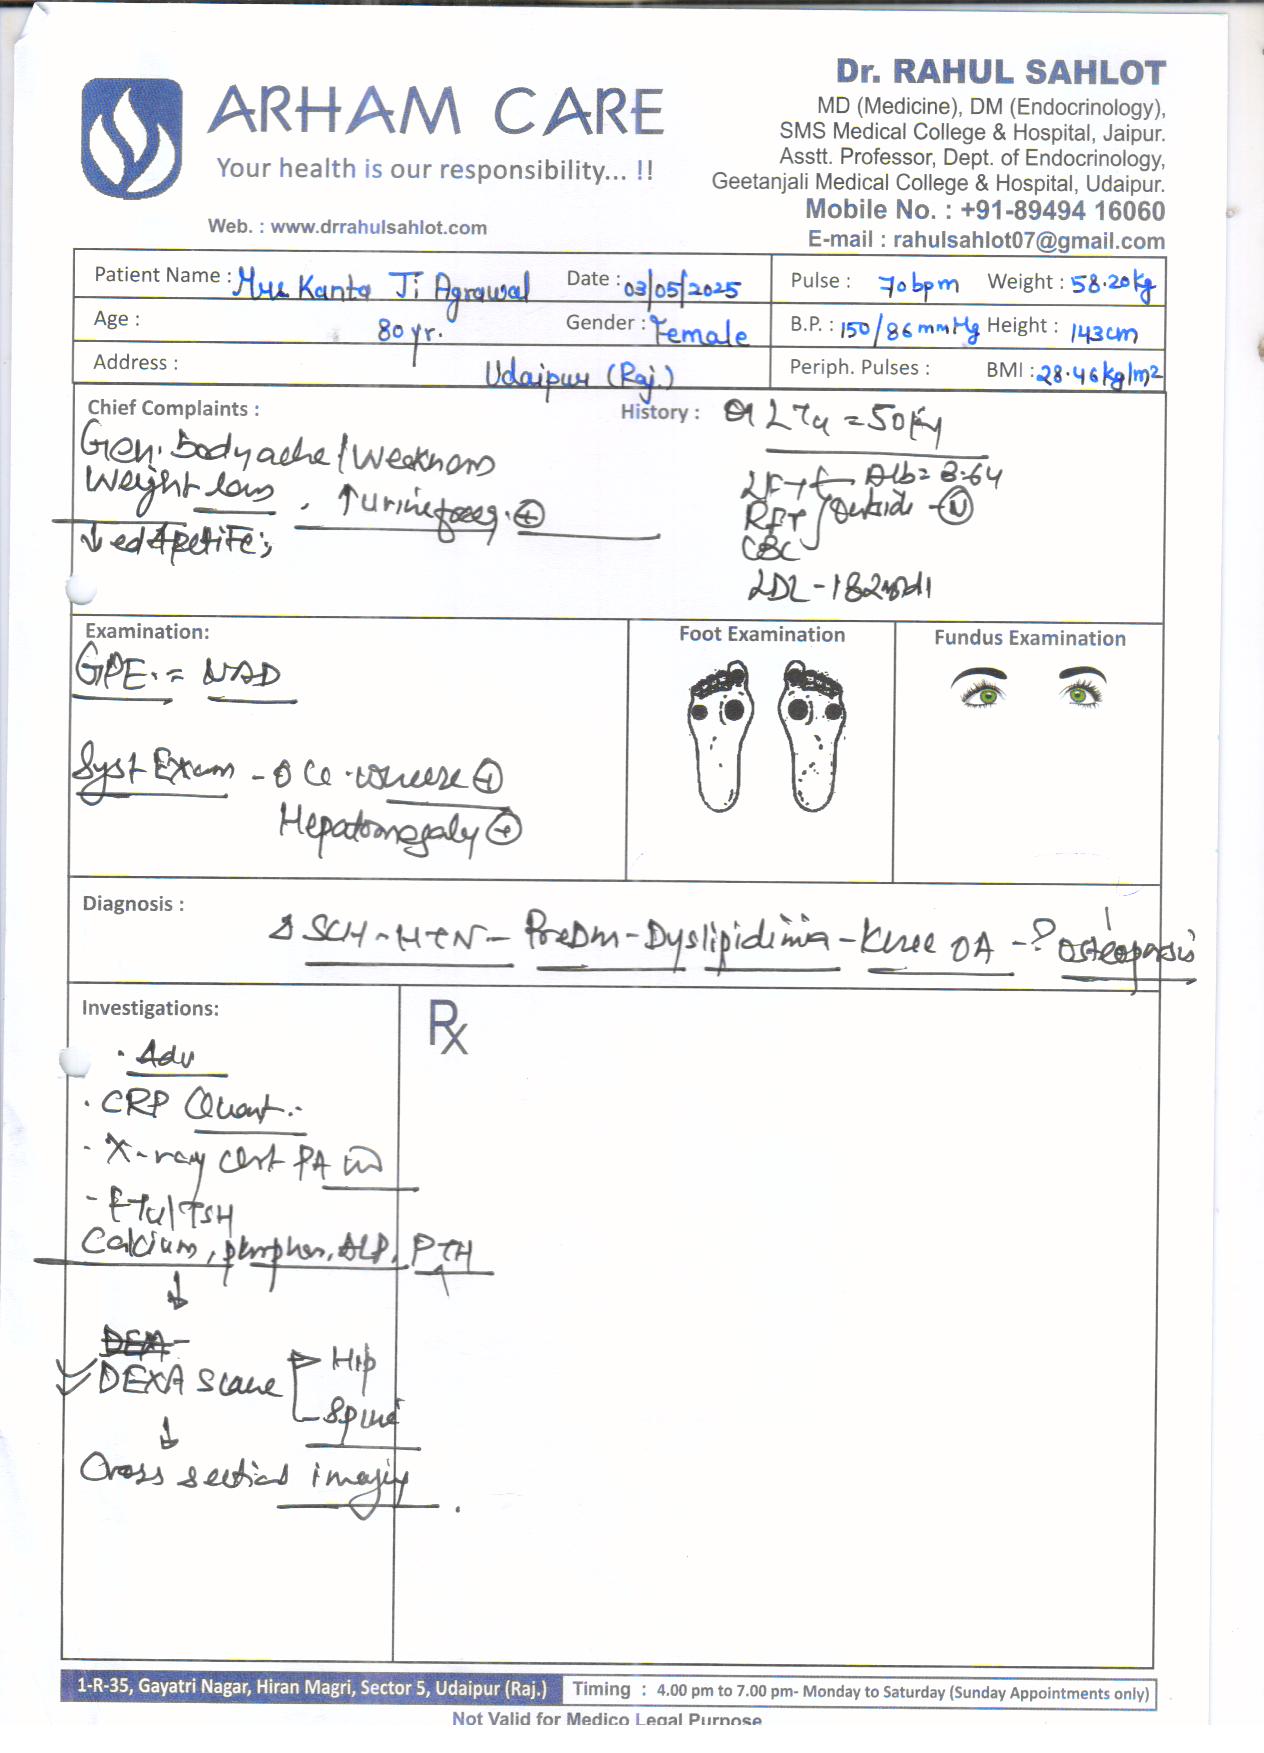 Dr. RAHUL SAHLOT
MD (Medicine), DM (Endocrinology),
SMS Medical College & Hospital, Jaipur.
Asstt. Professor, Dept. of Endocrinology,
Geetanjali Medical College & Hospital, Udaipur.
Mobile No. : +91-89494 16060
E-mail : rahulsahlot07@gmail.com
ARHAM CARE
Your health is our responsibility... !!
Web. : www.drrahulsahlot.com
Patient Name : Kanta Ji Agrawal Date : 03/05/2025 Pulse : 70bpm Weight : 58.20kg
Age : 80yr. Gender : Female B.P. : 150/86mmHg Height : 143cm
Address : Udaipur (Raj.) Periph. Pulses : BMI : 28.46kg/m2
Chief Complaints :
Gen. bodyache/Weekness
Weight loss, ↑urine ⊕
↓ed Apetite;
History : = 50
LFT Alb= 3.64
RFT Outside - Ⓝ
CBC
LDL - 182
Examination:
GPE. = NAD
Syst Exam - wheeze ⊕
Hepatomegaly ⊕
Foot Examination
Fundus Examination
Diagnosis :
SCH-HTN-PreDM-Dyslipidimia-Knee OA -? Osteoporosis
Investigations:
. Adv
. CRP Quant.
- X-ray chest PA
- FT4/TSH
Calcium, phosphorus, ALP, PTH
↓
DEXA Scane Hip
Spine
↓
Cross sectional imaging.
Rx
1-R-35, Gayatri Nagar, Hiran Magri, Sector 5, Udaipur (Raj.)
Timing : 4.00 pm to 7.00 pm- Monday to Saturday (Sunday Appointments only)
Not Valid for Medico Legal Purpose